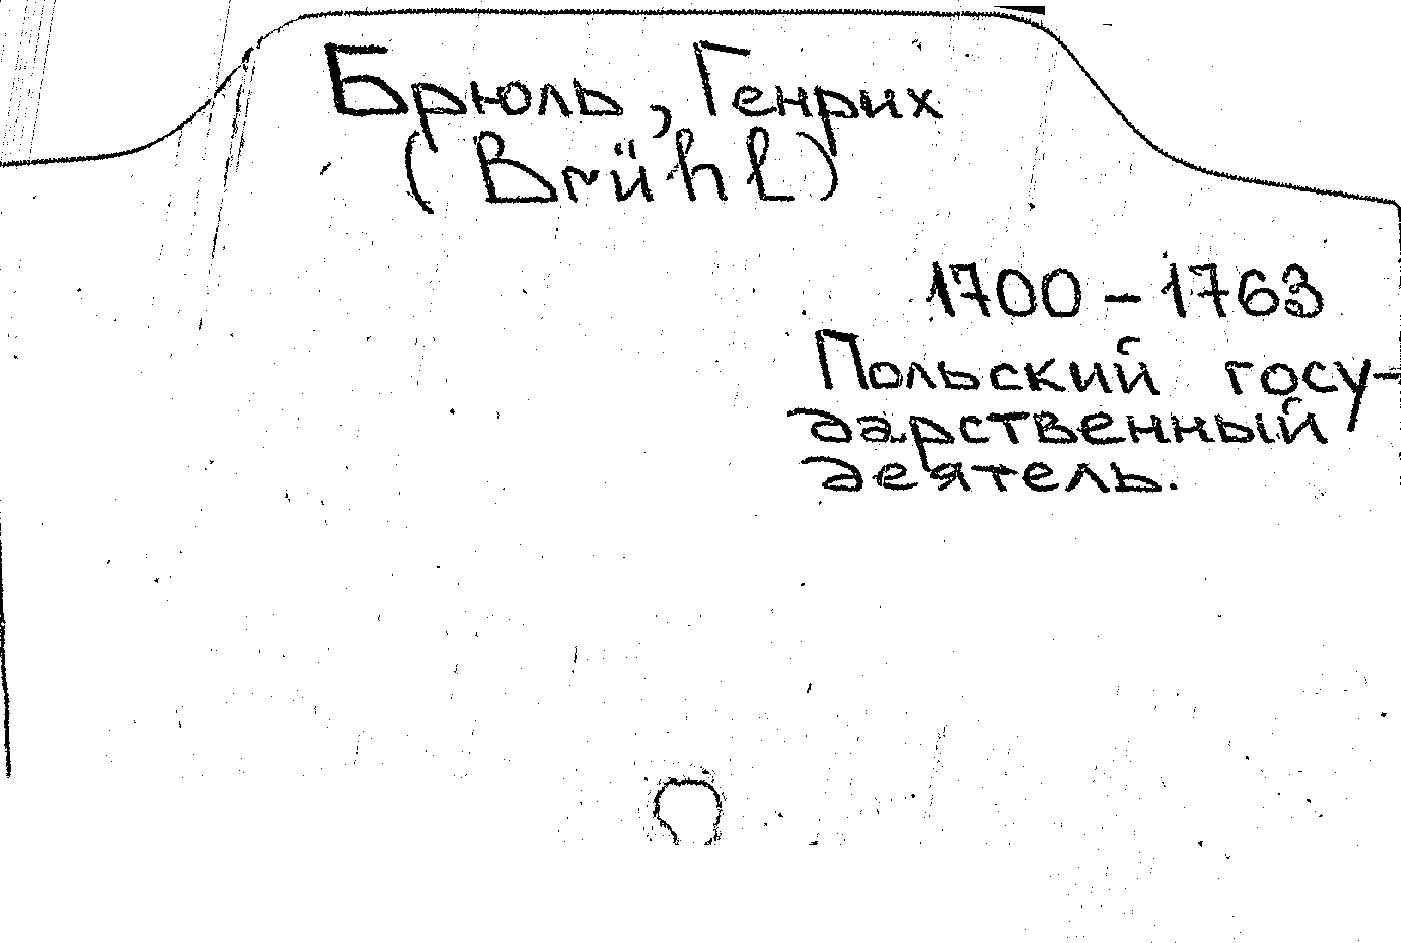 Брюль, Генрих
(Brühl)
1700 – 1763
Польский госу-
дарственный
деятель.